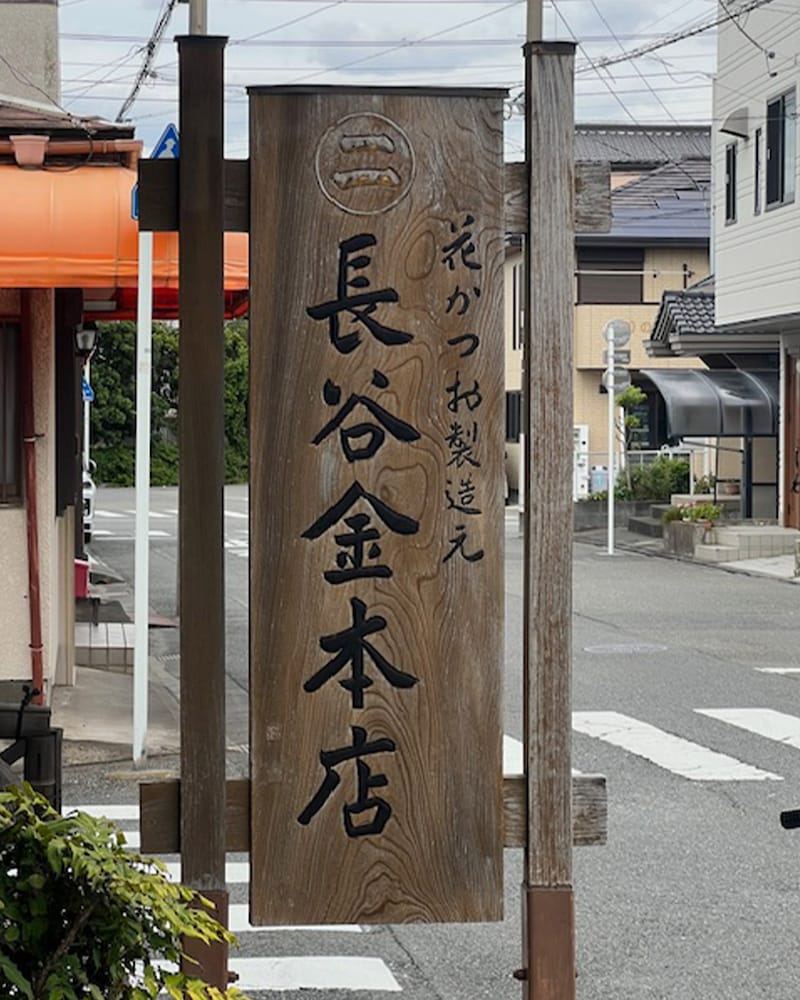 二
花かつお製造元
長谷金本店